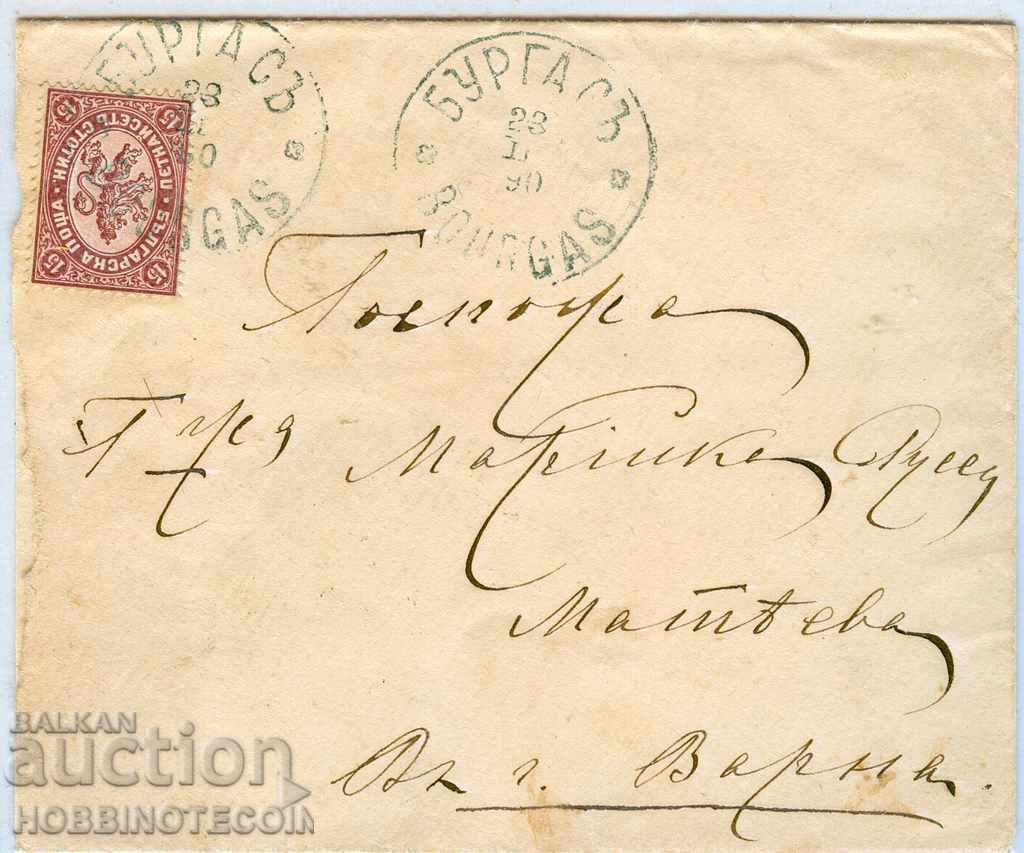 БУРГАСЪ
28
II
90
BOURGAS
БУРГАСЪ
28
II
90
BOURGAS
15 15
БЪЛГАРСКА ПОЩА
ПЕТНАЙСЕТЬ СТОТИН.
15 15
Госпожа
Г жа Марийка
Матѣева
Въ г. Варна.
BALKAN
auction
HOBBINOTECOIN